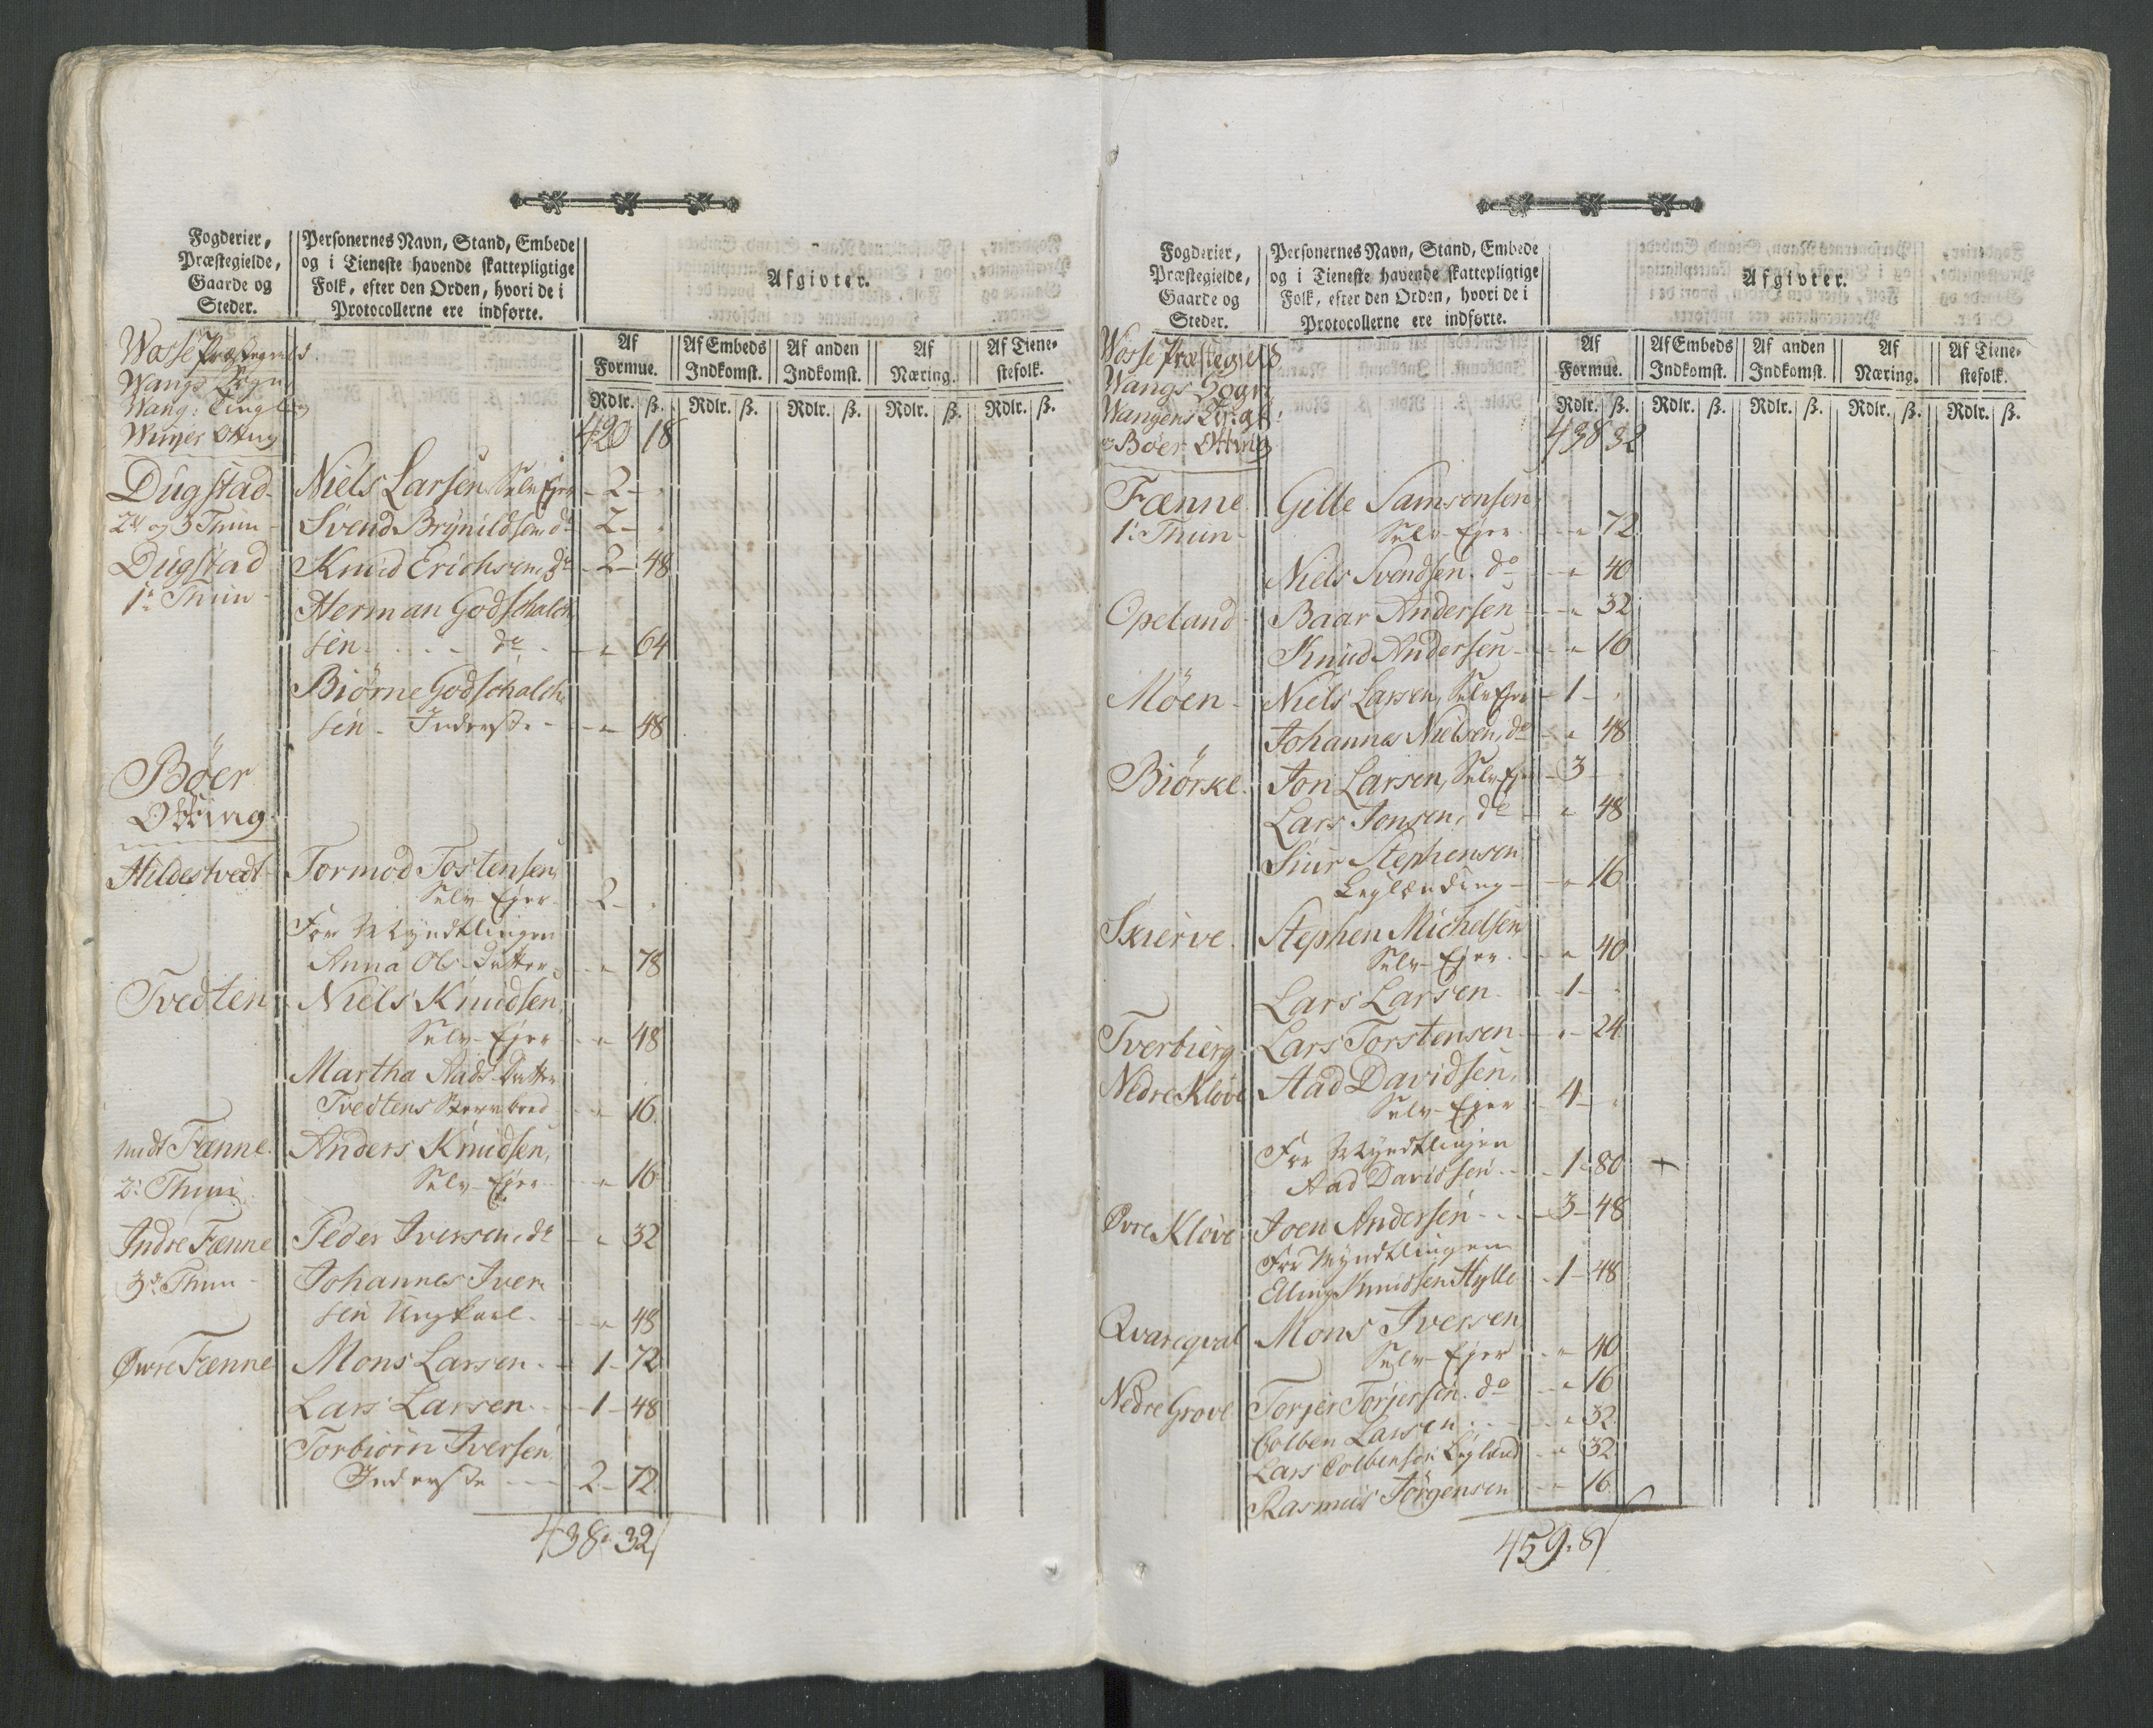 Fogderier,
Præstegielde,
Gaarde og
Steder.
Personernes Navn, Stand, Embede
og i Tieneste havende skattepligtige
Folk, efter den Orden, hvori de i
Protocollerne ere indførte.
Afgivter.
Af
Formue.
Af Embeds
Indkomst.
Af anden
Indkomst.
Af
Næring.
Af Tiene-
stefolk.
Rdlr. ß. Rdlr. ß. Rdlr. ß. Rdlr. ß. Rdlr. ß.
Wosse Præstegield
Wangs Sogn
Wang: Tinglag
Otting
420 18
Dugstad - Niels Larsen Selv Ejer - 2 - "
2de og 3 Thun - Svend Brynildsen, do - 2 - "
Dugstad Knud Erichsen, do - 2 - 48
1te Thun - Herman Godschalch
sen - - - do - - " 64
Biørne Godschalch
sen - Inderste - - " 48
Bøer
Otting
Hildestvedt - Tormod Tostensen
Selv Ejer - 2 - "
For Myndtlingen
Anna Ols Datter - " 78
Tvedten - Niels Knudsen
Selv Ejer - " 48
Martha Aads Datter
Tvedtens - " 16
midt Fænne. Anders Knudsen,
2: Thun Selv Ejer - " 16
Indre Fænne Peder Iversen, do - " 32
3de Thun - Johannes Iver
sen Ungkarl - - " 48
Øvre Fænne Mons Larsen - 1 - 72
Lars Larsen - - 1 - 48
Torbiørn Iversen
Inderste - - - 2 - 72
438. 32
Fogderier,
Præstegielde,
Gaarde og
Steder.
Personernes Navn, Stand, Embede
og i Tieneste havende skattepligtige
Folk, efter den Orden, hvori de i
Protocollerne ere indførte.
Afgivter.
Af
Formue.
Af Embeds
Indkomst.
Af anden
Indkomst.
Af
Næring.
Af Tiene-
stefolk.
Rdlr. ß. Rdlr. ß. Rdlr. ß. Rdlr. ß. Rdlr. ß.
Wosse Præstegield
Wangs Sogn
Wangens
Bøer Otting
438 32
Fænne Gille Samsonsen
1: Thun - Selv Ejer - - " 72
Niels Svendsen, do - " 40
Opeland - Baar Andersen - - " 32
Knud Andersen - - " 16
Møen - Niels Larsen, Selv Ejer - 1 - "
Johannes Nielsen, do - " 48
Biørke. Jon Larsen, Selv Ejer - 3 - "
Lars Jonsen, do - " 48
Siur Stephensen
Leylænding - - " 16
Skierve. Stephen Michelsen
Selv Ejer - - " 40
Lars Larsen - - 1 - "
Tverbierg - Lars Torstensen - " - 24
Nedre Kløve Aad Davidsen,
Selv Ejer - 4 - "
For Myndtlingen
Aad Davidsen - - 1 - 80 +
Øvre Kløve Joen Andersen - - 3 - 48
For Myndtlingen
Elling Knudsen Hylle - 1 - 48
Qvareqval Mons Iversen
Selv Ejer - " 40
Nedre Grove Torjer Torjersen. do - " 16
Colben Larsen - - " 32
Lars Colbensen Leylænd - " 32
Rasmus Jørgensen - - 16
459. 8